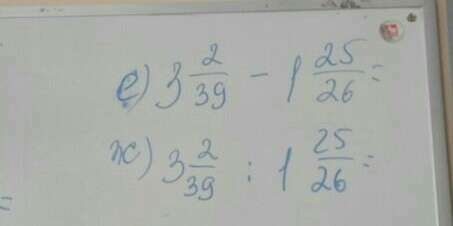 е) 3 2/39 - 1 25/26 =
ж) 3 2/39 : 1 25/26 =
=